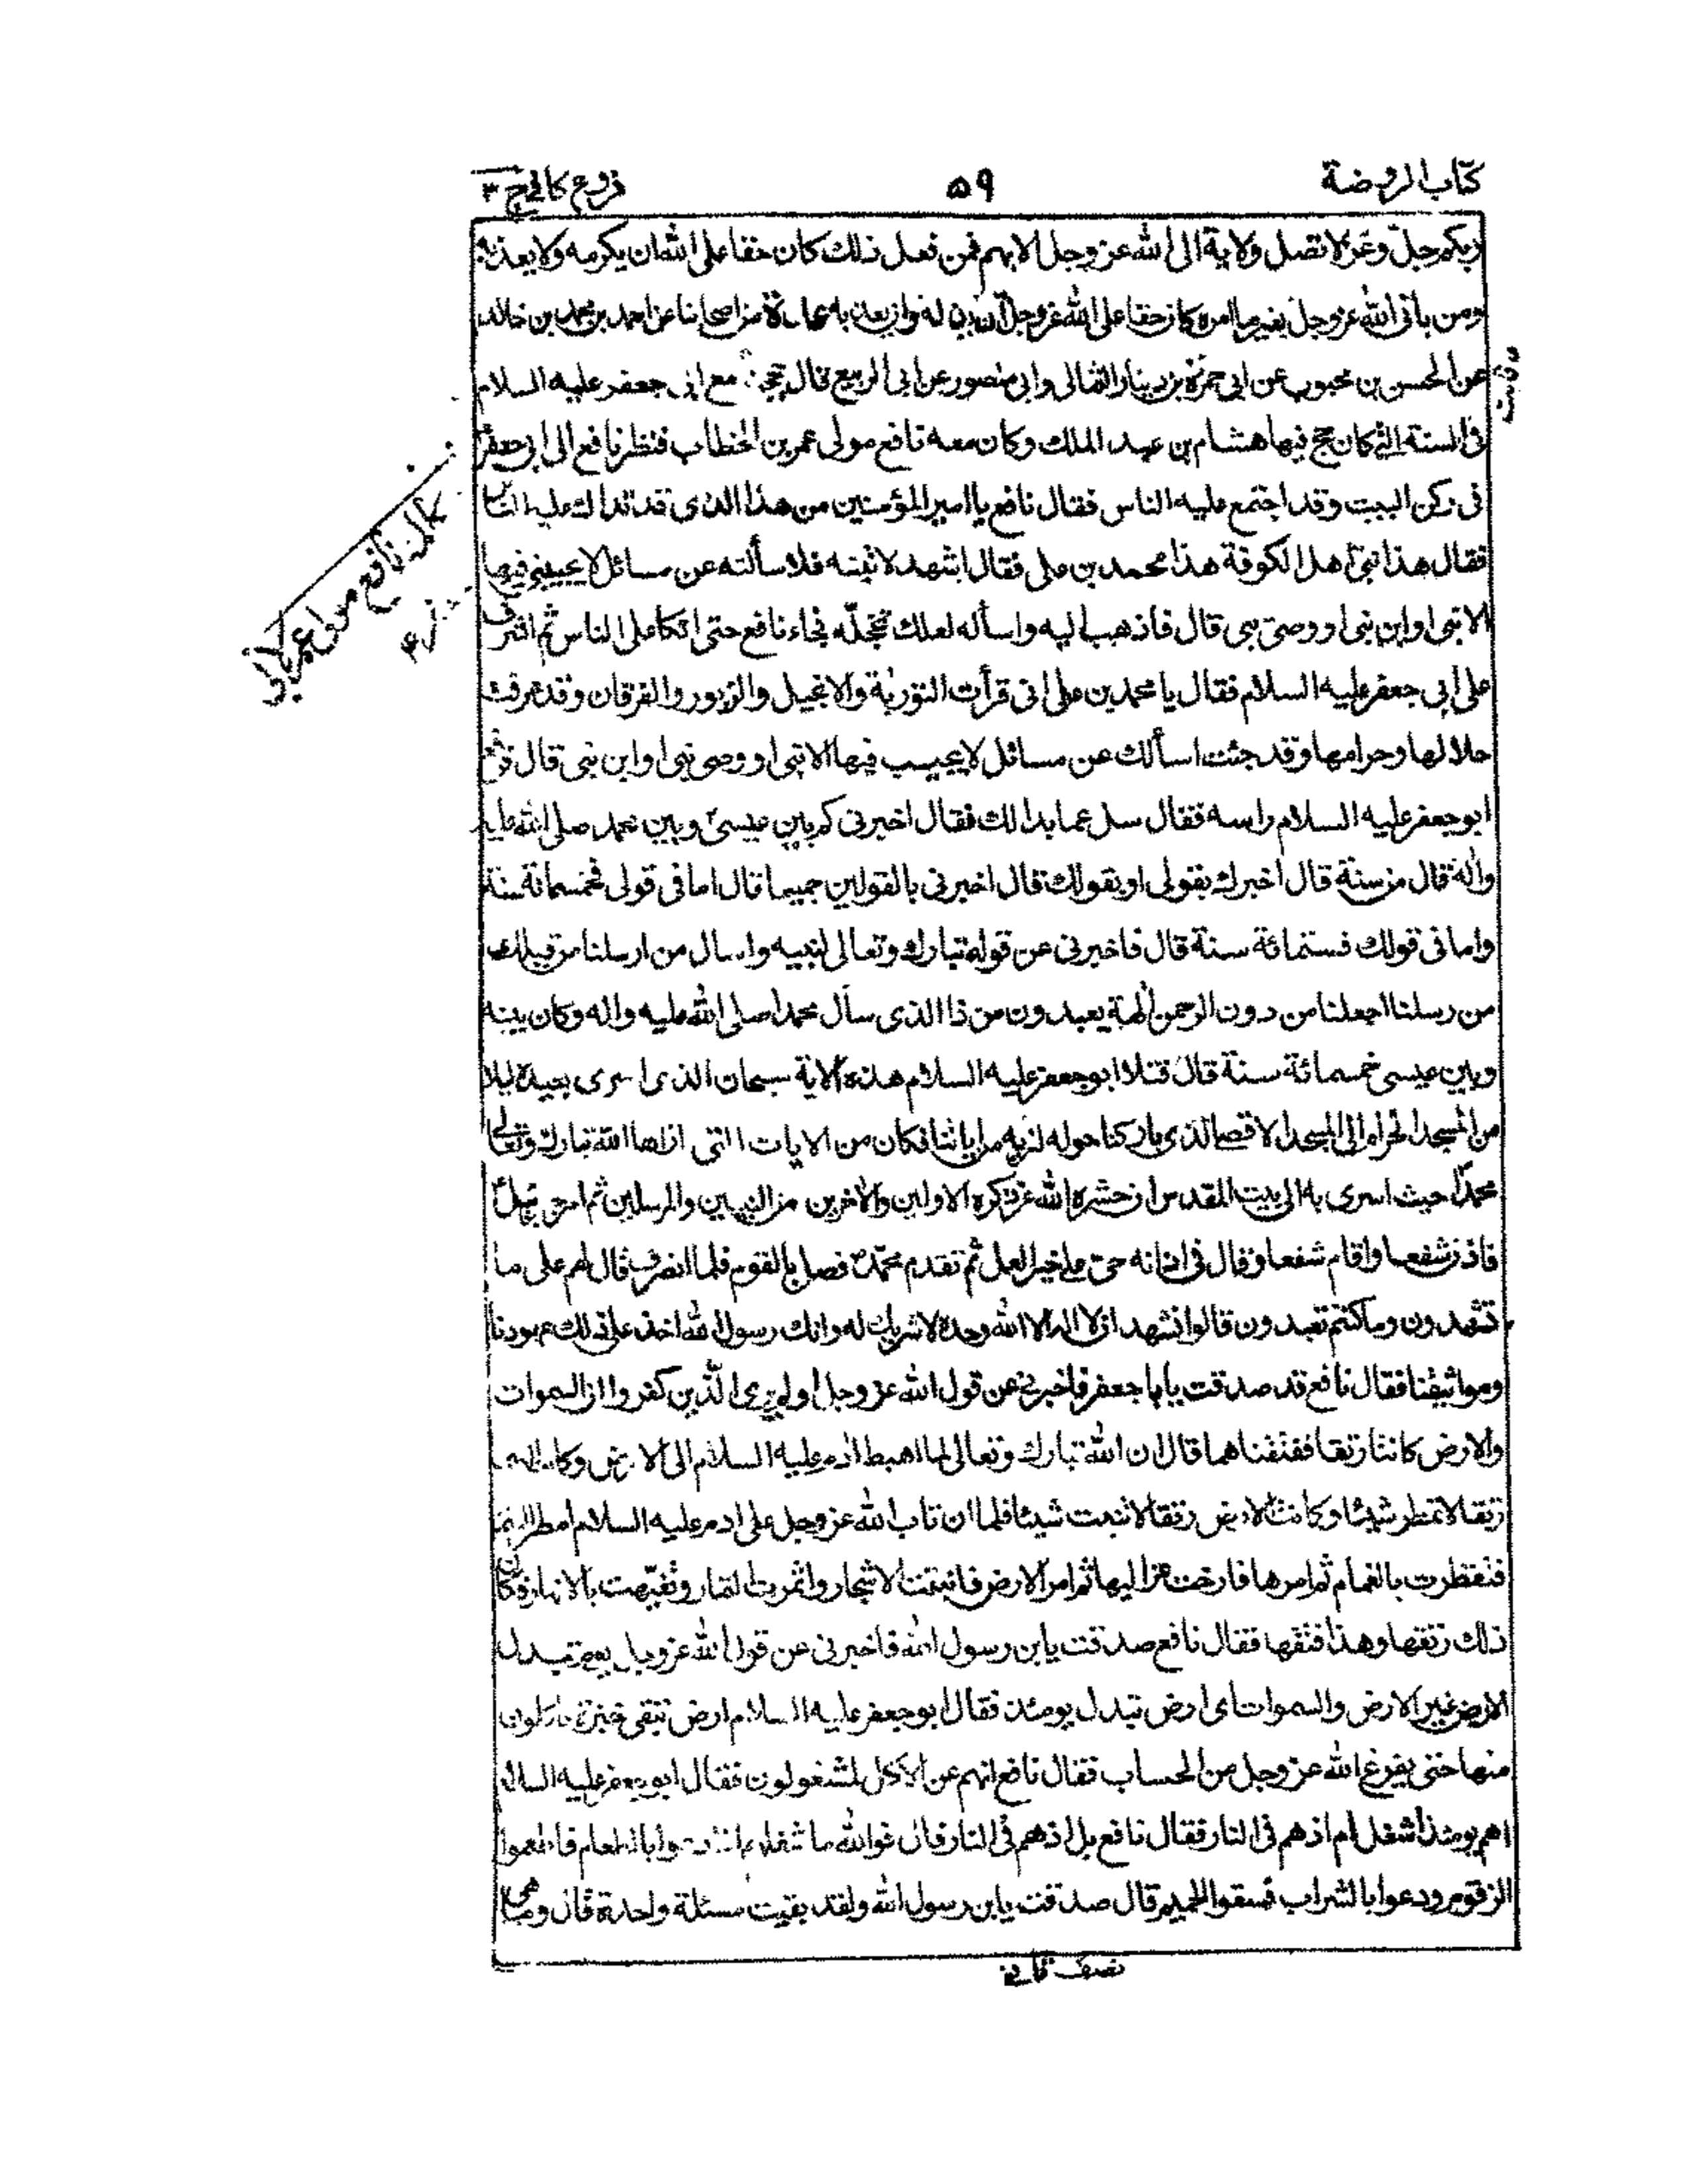 كتاب الروضة
۵۹
فروع كافي ج ۳
ربكم جلّ وعزّ لا تصل ولاية الى الله عز وجل الا بهم فمن فعل ذلك كان حقا على الله ان يكرمه ولا يعذبه
ومن ياتى الله عز وجل بغير ما امره كان حقا على الله عز وجل ان يذله وان يعذبه عدة من اصحابنا عن احمد بن محمد بن خالد
عن الحسن بن محبوب عن ابى حمزة بن دينار الثمالى وابى منصور عن ابى الربيع قال حججنا مع ابى جعفر عليه السلام
فى السنة التى كان حج فيها هشام بن عبد الملك وكان معه نافع مولى عمر بن الخطاب فنظر نافع الى ابى جعفر
فى ركن البيت وقد اجتمع عليه الناس فقال نافع يا امير المؤمنين من هذا الذى قد تداك عليه الناس
فقال هذا نبى اهل الكوفة هذا محمد بن على فقال اشهد لاتينه فلاسألنه عن مسائل لا يجيبنى فيها
الا نبى او ابن نبى او وصى نبى قال فاذهب اليه واسأله لعلك تخجلّه فجاء نافع حتى اتكا على الناس ثم اشرف
على ابى جعفر عليه السلام فقال يا محمد بن على انى قرأت التورية والانجيل والزبور والفرقان وقد عرفت
حلالها وحرامها وقد جئت اسألك عن مسائل لا يجيب فيها الا نبى او وصى نبى او ابن نبى قال فرفع
ابو جعفر عليه السلام راسه فقال سل عما بدا لك فقال اخبرنى كم بين عيسى وبين محمد صلى الله عليه
واله قال من سنة قال اخبرك بقولى او بقولك قال اخبرنى بالقولين جميعا قال اما فى قولى فخمسمائة سنة
واما فى قولك فستمائة سنة قال فاخبرنى عن قوله تبارك وتعالى لنبيه واسال من ارسلنا من قبلك
من رسلنا اجعلنا من دون الرحمن الهة يعبدون من ذا الذى سأل محمدا صلى الله عليه واله وكان بينه
وبين عيسى خمسمائة سنة قال فتلا ابو جعفر عليه السلام هذه الاية سبحان الذى اسرى بعبده ليلا
من المسجد الحرام الى المسجد الاقصا الذى باركنا حوله لنريه من اياتنا فكان من الايات التى اراها الله تبارك وتعالى
محمدا حيث اسرى به الى بيت المقدس ان حشره الله عز ذكره الاولين والاخرين من النبيين والمرسلين ثم امر جبرئيل
فاذن شفعا واقام شفعا وقال فى اذانه حى على خير العمل ثم تقدم محمد فصلى بالقوم فلما انصرف قال لهم على ما
تشهدون وما كنتم تعبدون قالوا نشهد ان لا اله الا الله وحده لا شريك له وانك رسول الله اخذ على ذلك عهودنا
ومواثيقنا فقال نافع قد صدقت يا با جعفر فاخبرنى عن قول الله عز وجل اولم يرى الذين كفروا ان السموات
والارض كانتا رتقا ففتقناهما قال ان الله تبارك وتعالى لما اهبط ادم عليه السلام الى الارض وكانت
رتقا لا تمطر شيئا وكانت الارض رتقا لا تنبت شيئا فلما ان تاب الله عز وجل على ادم عليه السلام امطر السماء
فتفطرت بالغمام ثم امرها فارخت عزاليها ثم امر الارض فانبتت الاشجار واثمرت الثمار وتفيهت بالانهار فكان
ذلك رتقها وهذا فتقها فقال نافع صدقت يا بن رسول الله فاخبرنى عن قول الله عز وجل يوم تبدل
الارض غير الارض والسموات اى ارض تبدل يومئذ فقال ابو جعفر عليه السلام ارض تبقى خبزة ياكلون
منها حتى يفرغ الله عز وجل من الحساب فقال نافع انهم عن الاكل لمشغولون فقال ابو جعفر عليه السلام
اهم يومئذ اشغل ام اذ هم فى النار فقال نافع بل اذ هم فى النار قال فوالله ما شغلهم اذ دعوا بالطعام فاطعموا
الزقوم ودعوا بالشراب فسقوا الحميم قال صدقت يا بن رسول الله ولقد بقيت مسئلة واحدة قال وما هى